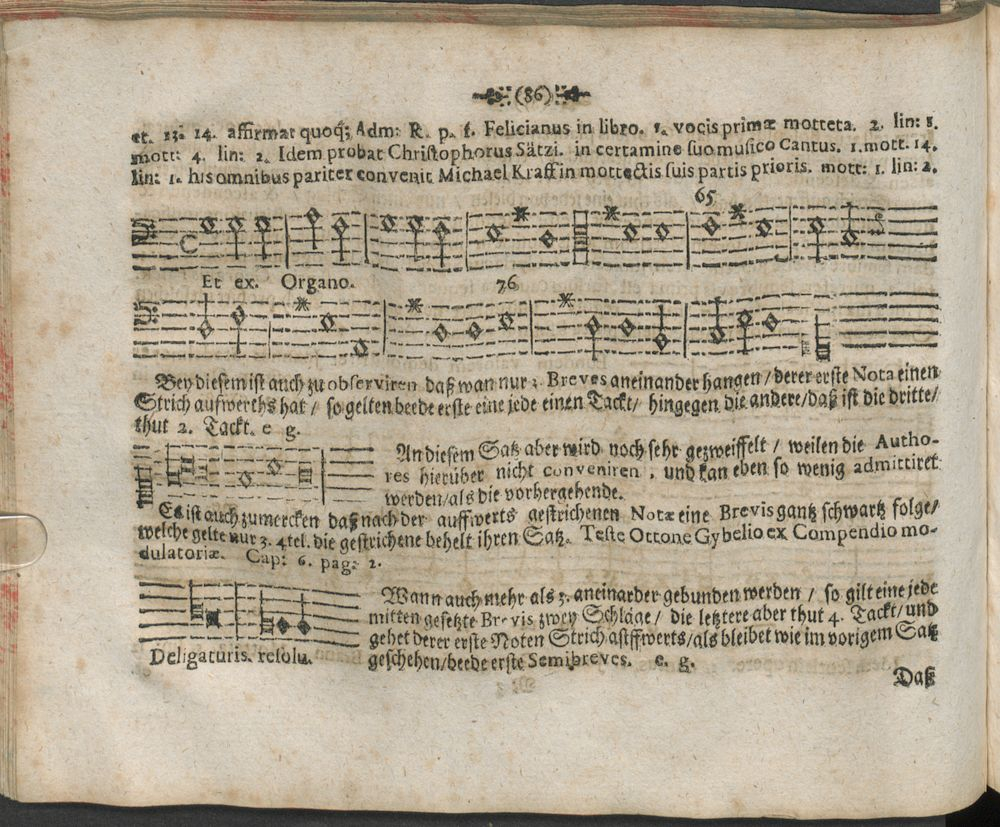 (86)
et. 13. 14. affirmat quoq; Adm: R. p. f. Felicianus in libro. 1. vocis primæ motteta. 2. lin: 8.
mott: 4. lin: 2. Idem probat Christophorus Sätzl. in certamine suo musico Cantus. 1. mott. 14.
lin: 1. his omnibus pariter convenit Michael Kraff in mottectis suis partis prioris. mott: 1. lin: 2.
65
Et ex. Organo.
76
Bey diesem ist auch zu observiren daß wan nur 3. Breves aneinander hangen / derer erste Nota einen
Strich aufwerths hat / so gelten beede erste eine jede einen Tackt / hingegen die andere / daß ist die dritte /
thut 2. Tackt. e g.
An diesem Satz aber wird noch sehr gezweiffelt / weilen die Autho-
res hierüber nicht conveniren, und kan eben so wenig admittiret
werden / als die vorhergehende.
Es ist auch zumercken daß nach der auffwerts gestrichenen Notæ eine Brevis gantz schwartz folge /
welche gelte nur 3. 4tel. die gestrichene behelt ihren Satz. Teste Ottone Gybelio ex Compendio mo-
dulatoriæ. Cap: 6. pag: 2.
Wann auch mehr als 3. aneinarder gebunden werden / so gilt eine jede
mitten gesetzte Brevis zwey Schläge / die letztere aber thut 4. Tackt / und
gehet derer erste Noten Strich astffwerts / als bleibet wie im vorigem Satz
Deligaturis. resolu.
geschehen / beede erste Semibreves. e. g.
Daß